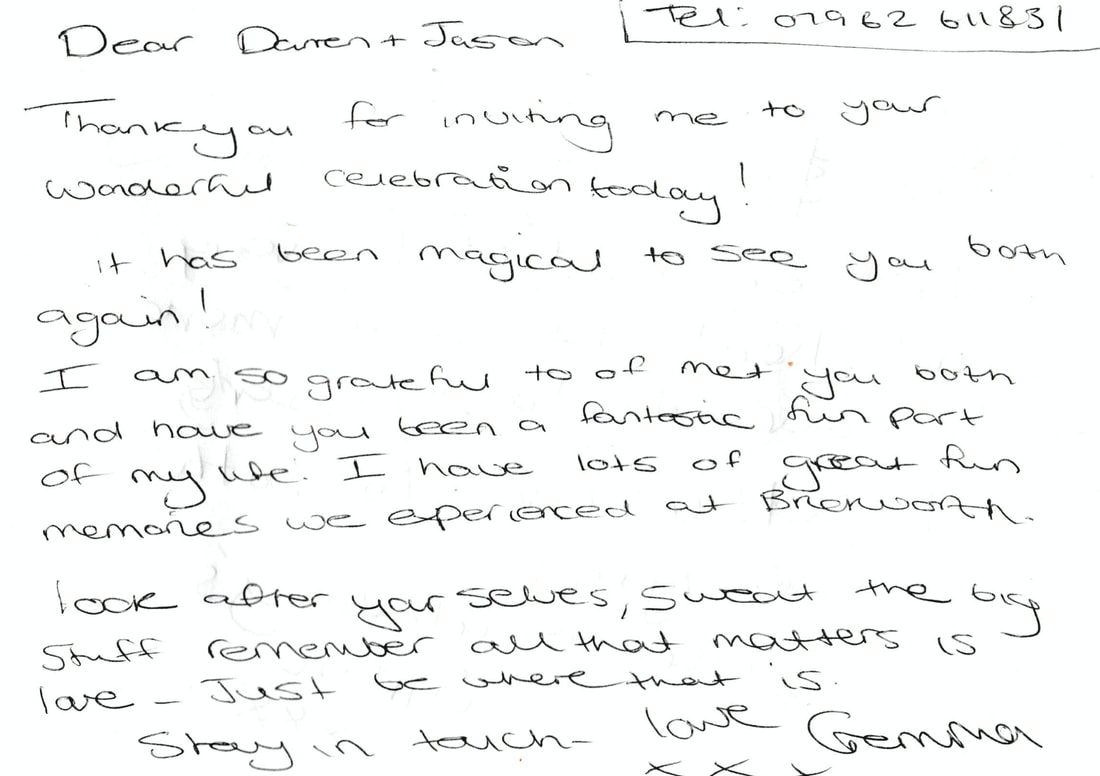 Tel: 07962 611831
Dear Darren + Jason
Thankyou for inviting me to your
wonderful celebration today!
it has been magical to see you both
again!
I am so grateful to of met you both
and have you been a fantastic fun part
of my life. I have lots of great fun
memories we experienced at Brixworth.
look after your selves, Sweat the big
stuff remember all that matters is
love - Just be where that is.
Stay in touch - love Gemma
x x x